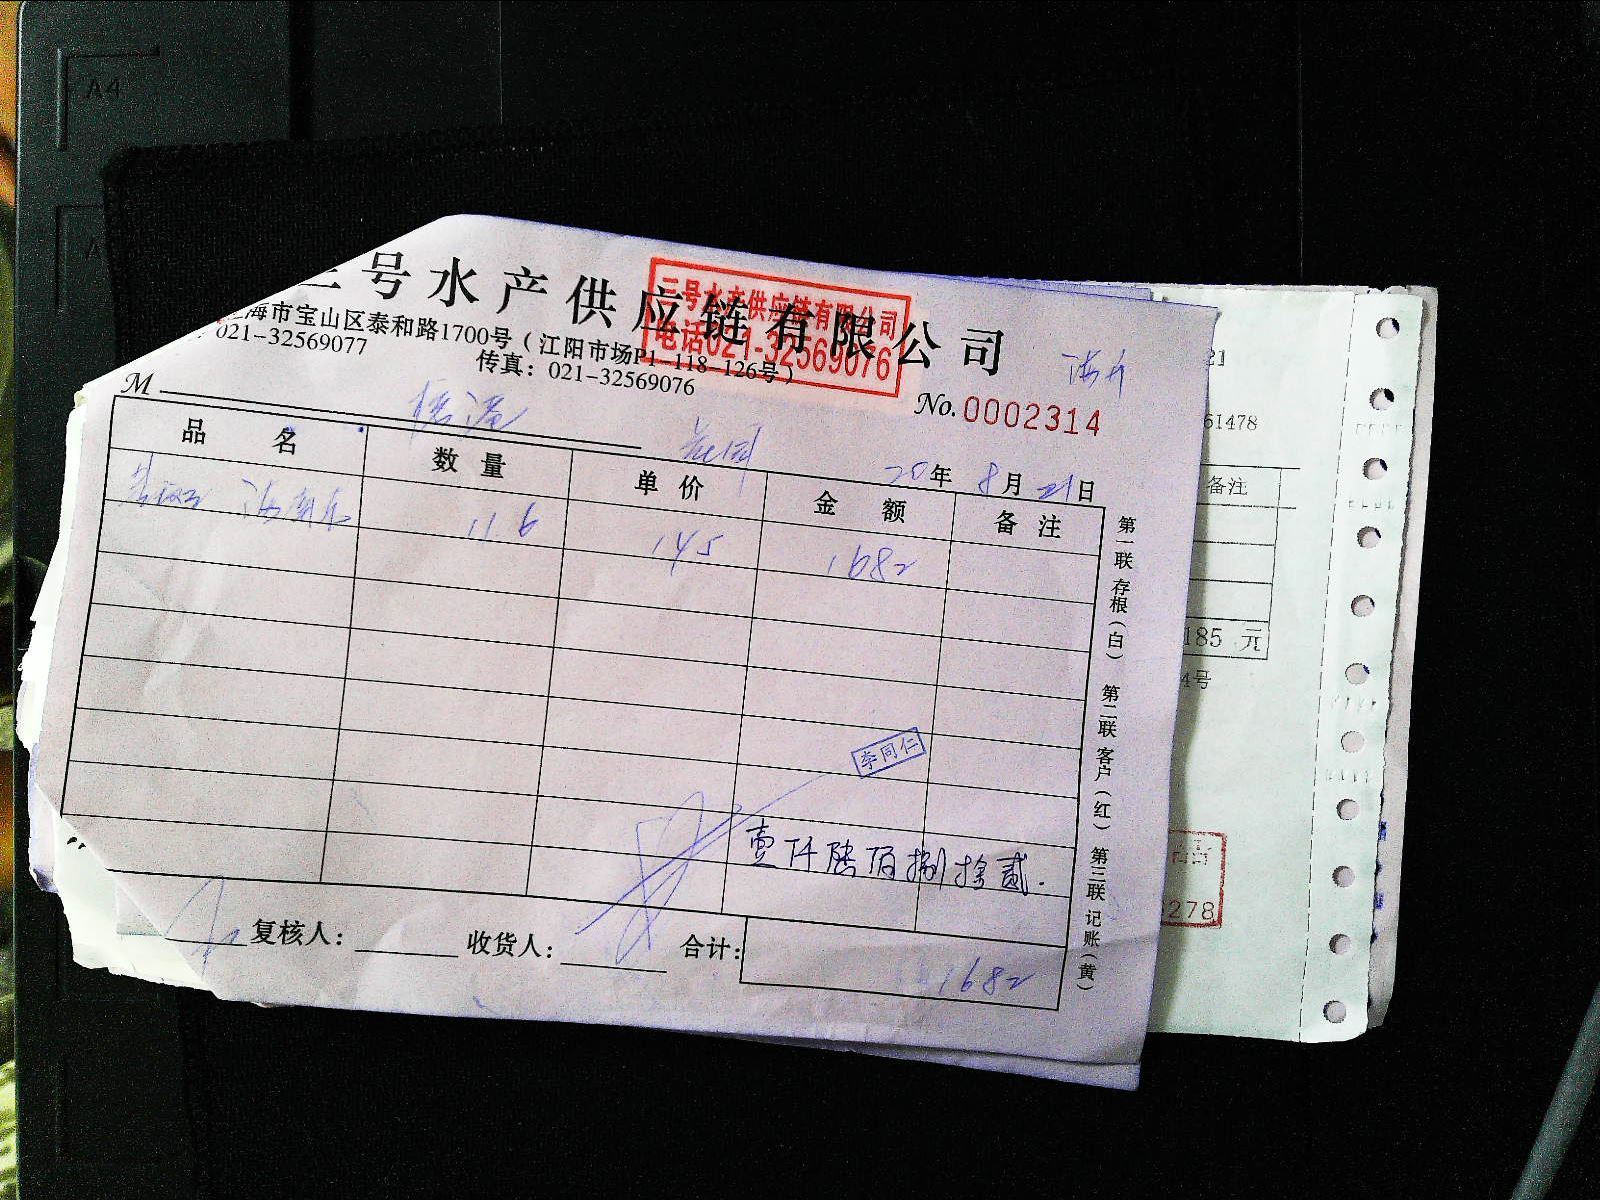 三号水产供应链有限公司
三号水产供应链有限公司
电话021-32569076
海市宝山区泰和路1700号（江阳市场P1-118-126号）
021-32569077
传真：021-32569076
M
No.0002314
20年8月21日
品名 数量 单价 金额 备注
11.6 145 1682
李同仁
壹仟陆佰捌拾贰.
复核人： 收货人： 合计：
1682
第一联存根（白） 第二联客户（红） 第三联记账（黄）
21
61478
备注
185 元
4号
278
A4